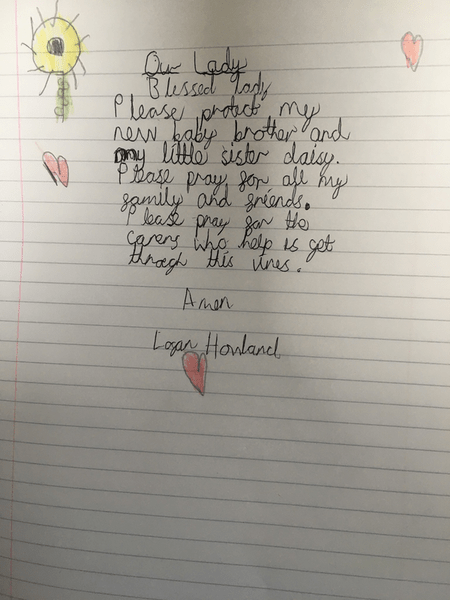 Our Lady
Blessed lady
Please protect my
new baby brother and
my little sister daisy.
Please pray for all my
family and friends.
Please pray for the
carers who help us get
through this vires.
Amen
Logan Howland